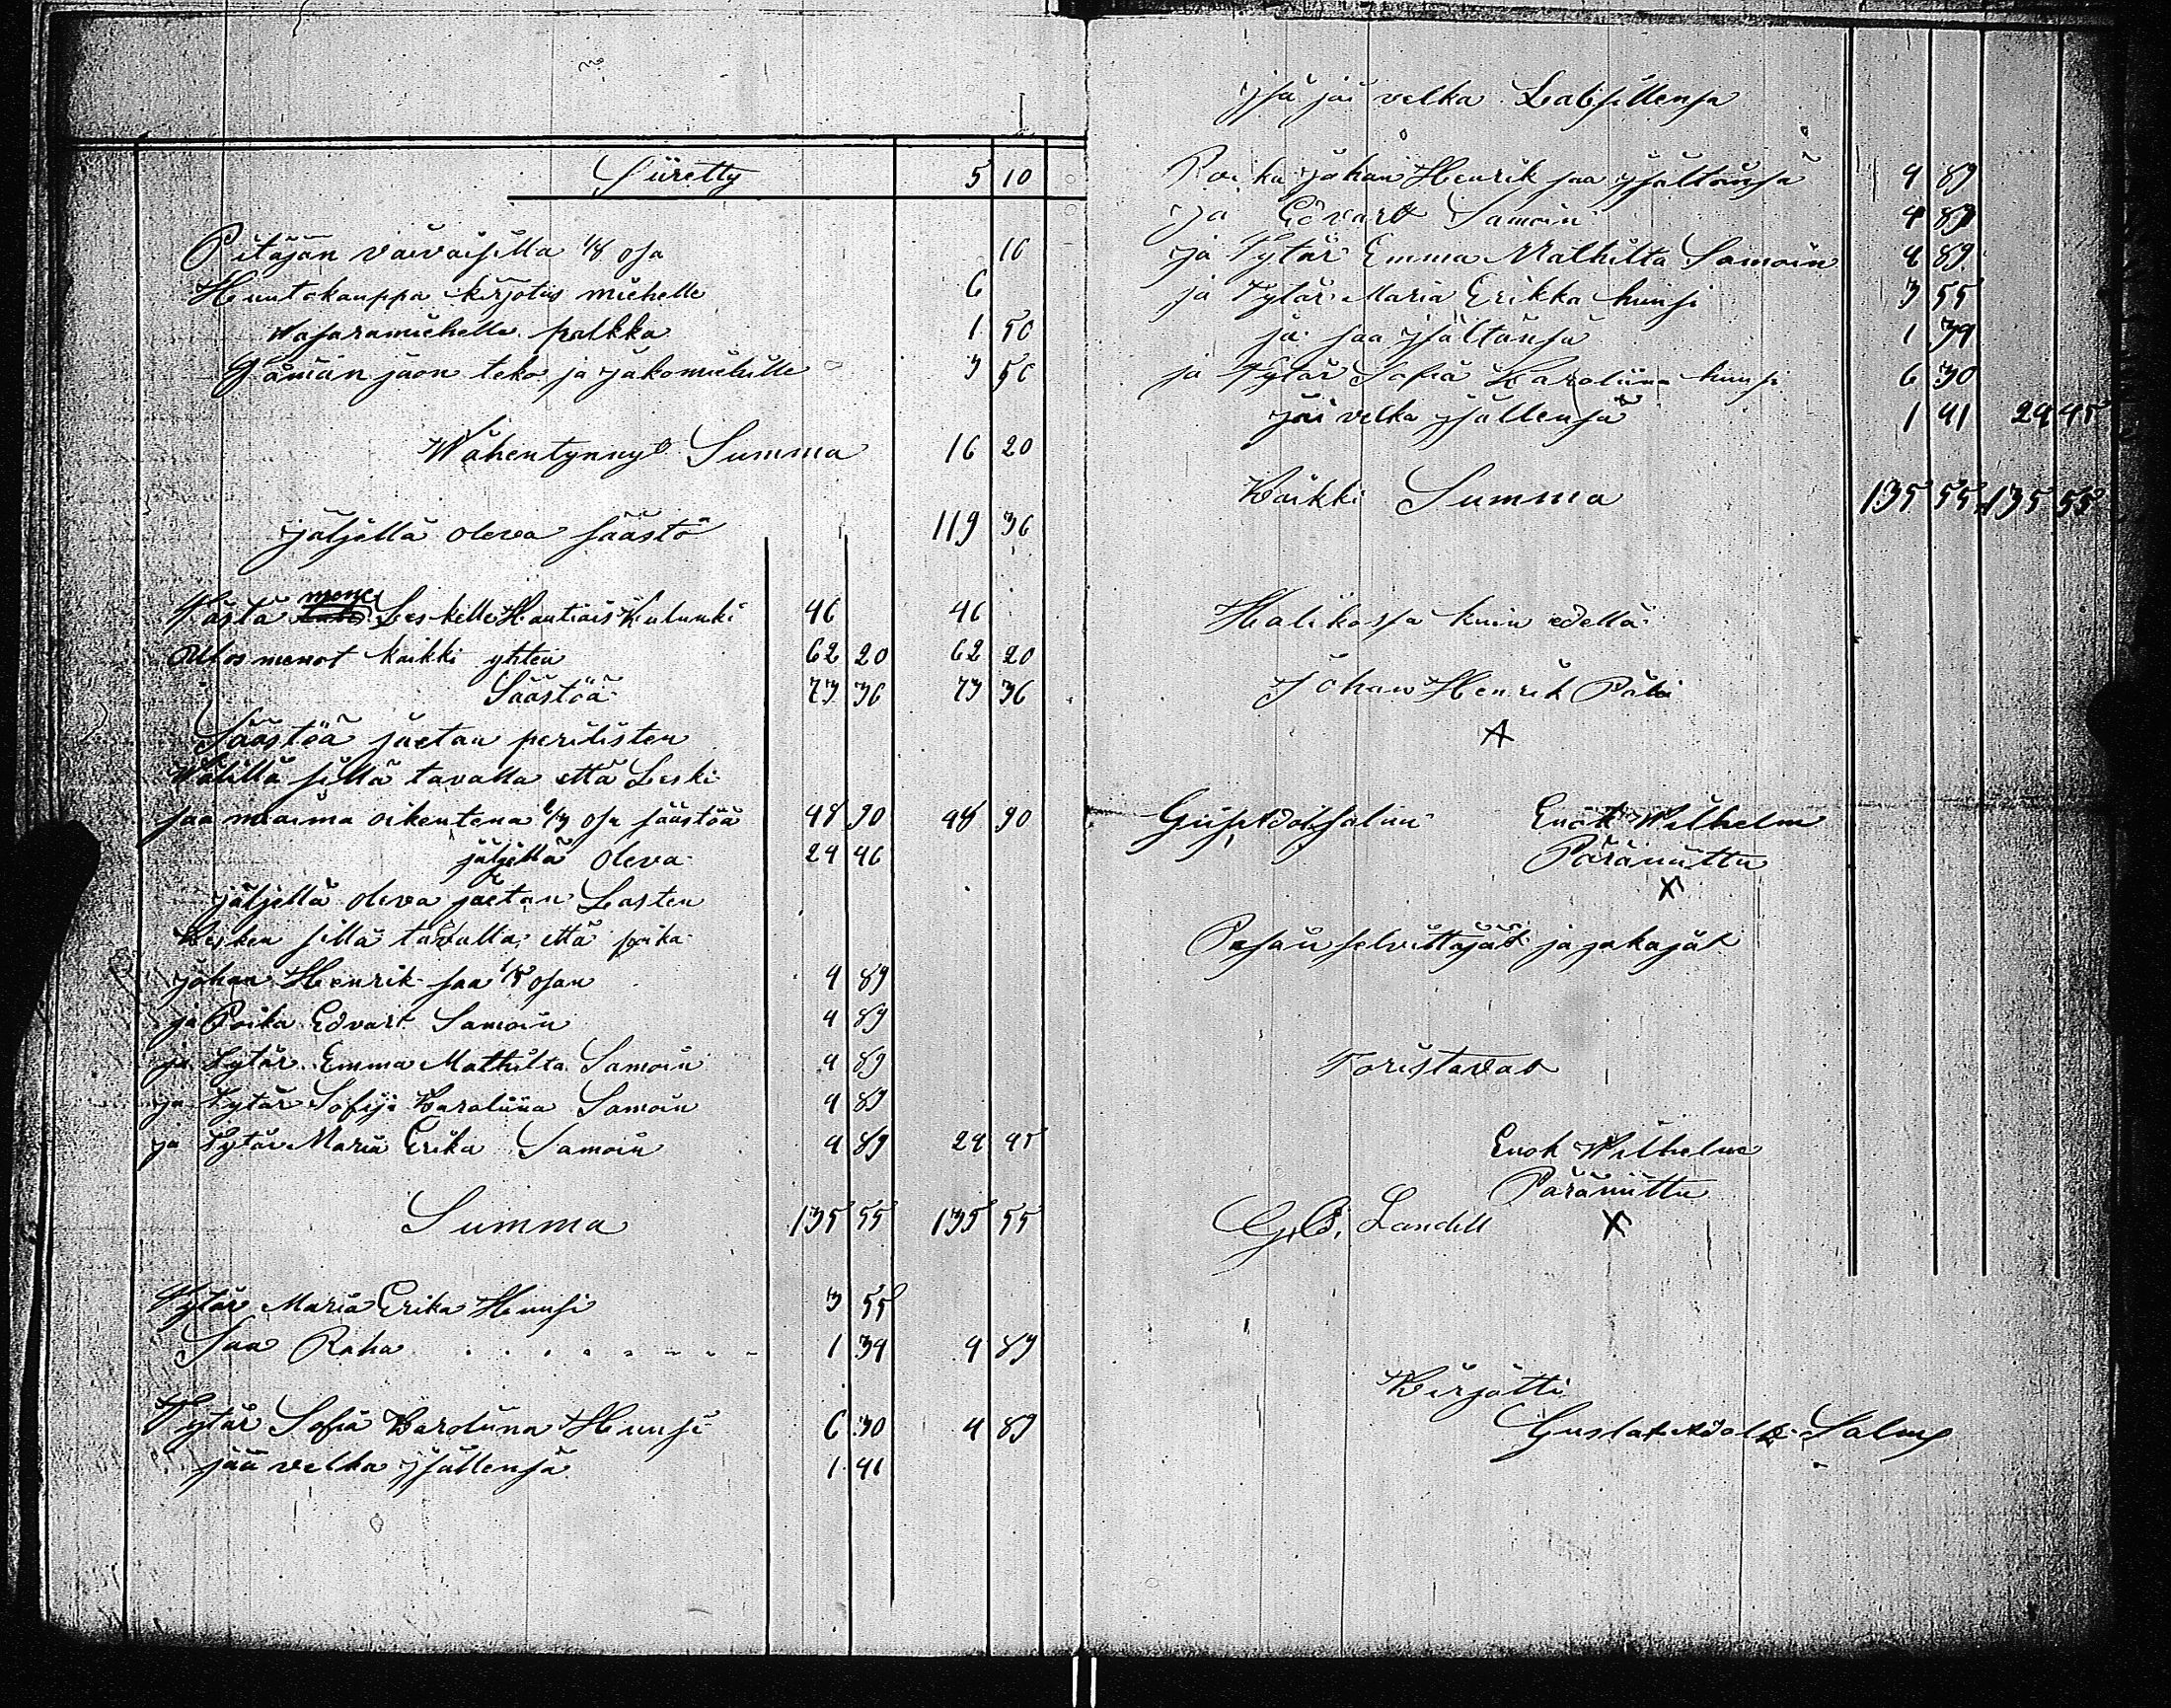 Siiretty 5 10
Pitäjän vaivaisilla 1/8 osa 10
Huutokauppa kirjotus miehelle 6
Wasaramiehelle palkka 1 50
Tämän jaon teko ja jakomiehille 3 50
Wähentynnyt Summa 16 20
jäljellä oleva säästö 119 36
Tästä menee Leskelle Hautiais Kulunki 46 46
Ulos menot kaikki yhten 62 20 62 20
Säästöä 73 36 73 36
Säästöä jaetan perilisten
Wälillä sillä tavalla että Leski
saa naima oikeutena 2/3 osa säästöä 48 90 48 90
jäljellä oleva 24 46
jäljellä oleva jaetan Lasten
Kesken sillä tavalla että poika
Johan Henrik saa 1/5 osan 4 89
ja Poika Edvart Samoin 4 89
ja Tytär Emma Mathilta Samoin 4 89
ja Tytär Sofija Karoliina Samoin 4 89
ja Tytär Maria Erika Samoin 4 89 24 45
Summa 135 55 135 55
Tytär Maria Erika Huusi 3 55
Saa Raha 1 34 4 89
Tytär Sofia Karoliina Huusi 6 30 4 89
jää velka jsällensä 1 41
jsä jäi velka Labsillensa
Poika Johan Henrik saa jsältänsä 4 89
ja Edvart Samoin 4 89
ja Tytär Emma Mathilta Samoin 4 89
ja Tytär Maria Erikka huusi 3 55
ja saa jsältänsä 1 34
ja Tytär Sofia Karoliina huusi 6 30
jäi velka jsällensä 1 41 24 45
Kaikki Summa 135 55 135 55
Halikossa kuin edellä
Johan Henrik
Enok Wilhelm
Päräniittu
X
Pesän selvittäjät ja jakajat
Toristavat
Enok Wilhelm
Päräniittu
G. O. Landell X
Kirjotti
Gustaf Adolf Salmi